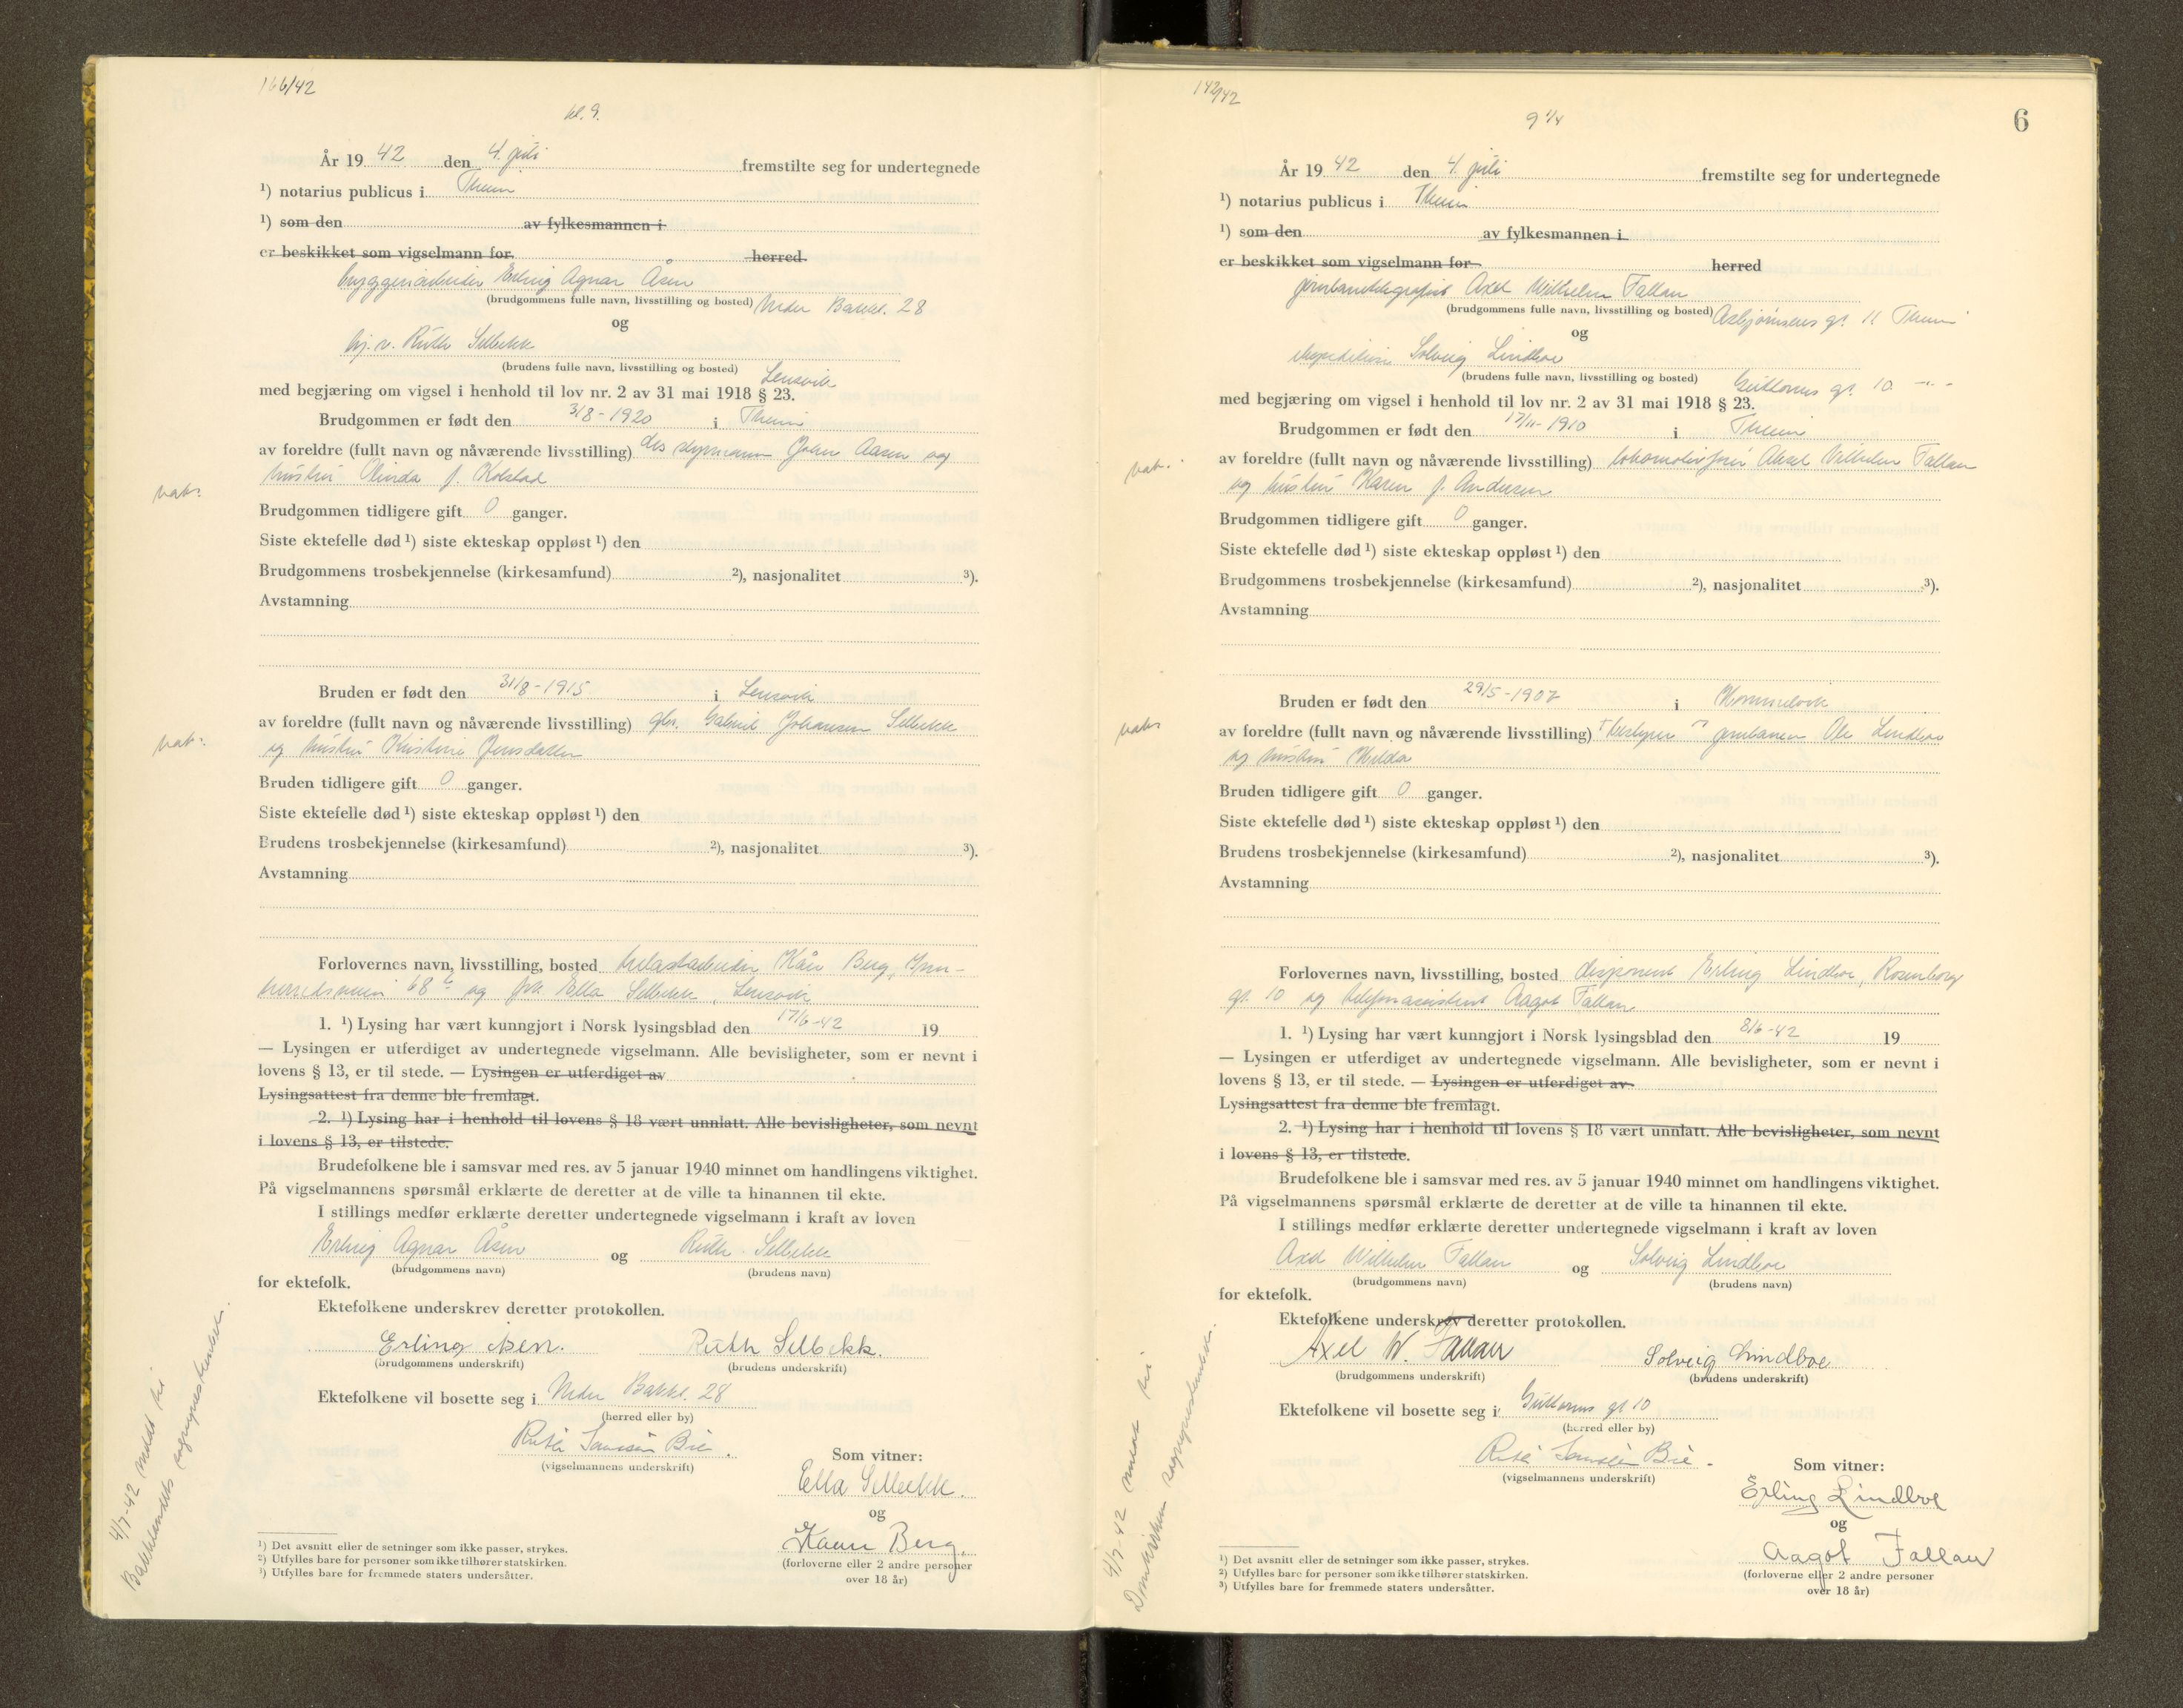 166/42
kl. 9.
År 1942 den 4. juli fremstilte seg for undertegnede
¹) notarius publicus i Thrm
¹) som den av fylkesmannen i
er beskikket som vigselmann for herred.
bryggeriarbeider Erling Agnar Åsen
(brudgommens fulle navn, livsstilling og bosted) Nedre Bakkl. 28
og
hj. v. Ruth Selbekk
(brudens fulle navn, livsstilling og bosted) Lensvik
med begjæring om vigsel i henhold til lov nr. 2 av 31 mai 1918 § 23.
Brudgommen er født den 3/8-1920 i Thrm
av foreldre (fullt navn og nåværende livsstilling) styrmann John Aasen og
hustru Olinda f. Kolstad
vab.
Brudgommen tidligere gift 0 ganger.
Siste ektefelle død ¹) siste ekteskap oppløst ¹) den
Brudgommens trosbekjennelse (kirkesamfund) ²), nasjonalitet ³).
Avstamning
Bruden er født den 31/8-1915 i Lensvik
av foreldre (fullt navn og nåværende livsstilling) gbr. Gabriel Johansen Selbekk
og hustru Kristine Jensdatter
vab.
Bruden tidligere gift 0 ganger.
Siste ektefelle død ¹) siste ekteskap oppløst ¹) den
Brudens trosbekjennelse (kirkesamfund) ²), nasjonalitet ³).
Avstamning
Forlovernes navn, livsstilling, bosted Kåre Berg, Inn-
herredsveien 68 og frk Ella Selbekk, Lensvik
1. ¹) Lysing har vært kunngjort i Norsk lysingsblad den 17/6-42 19
— Lysingen er utferdiget av undertegnede vigselmann. Alle bevisligheter, som er nevnt i
lovens § 13, er til stede. — Lysingen er utferdiget av
Lysingsattest fra denne ble fremlagt.
2. ¹) Lysing har i henhold til lovens § 18 vært unnlatt. Alle bevisligheter, som nevnt
i lovens § 13, er tilstede.
Brudefolkene ble i samsvar med res. av 5 januar 1940 minnet om handlingens viktighet.
På vigselmannens spørsmål erklærte de deretter at de ville ta hinannen til ekte.
I stillings medfør erklærte deretter undertegnede vigselmann i kraft av loven
Erling Agnar Åsen og Ruth Selbekk
(brudgommens navn) (brudens navn)
for ektefolk.
Ektefolkene underskrev deretter protokollen.
Erling Åsen. Ruth Selbekk.
(brudgommens underskrift) (brudens underskrift)
Ektefolkene vil bosette seg i Nedre Bakkl. 28
(herred eller by)
(vigselmannens underskrift)
Som vitner:
Ella Selbekk.
og
Kaare Berg.
(forloverne eller 2 andre personer
over 18 år)
¹) Det avsnitt eller de setninger som ikke passer, strykes.
²) Utfylles bare for personer som ikke tilhører statskirken.
³) Utfylles bare for fremmede staters undersåtter.
4/7-42 meldt til
Bakklandets sogneprestembede.
142/42
9 1/4
6
År 1942 den 4. juli fremstilte seg for undertegnede
¹) notarius publicus i Thrm
¹) som den av fylkesmannen i
er beskikket som vigselmann for herred
jernbanetelegrafist Axel Wilhelm Fallan
(brudgommens fulle navn, livsstilling og bosted) Asbjørnsens gt. 11 Thrm
og
ekspeditrise Solveig Lindboe
(brudens fulle navn, livsstilling og bosted) Guttorms gt. 10 -"-
med begjæring om vigsel i henhold til lov nr. 2 av 31 mai 1918 § 23.
Brudgommen er født den 17/11-1910 i Thrm
av foreldre (fullt navn og nåværende livsstilling) lokomotivfører Aksel Vilhelm Fallan
og hustru Karen f. Andersen
vab.
Brudgommen tidligere gift 0 ganger.
Siste ektefelle død ¹) siste ekteskap oppløst ¹) den
Brudgommens trosbekjennelse (kirkesamfund) ²), nasjonalitet ³).
Avstamning
Bruden er født den 29/5-1907 i Hommelvik
av foreldre (fullt navn og nåværende livsstilling) jernbanen Ole Lindboe
og hustru Hilda
vab.
Bruden tidligere gift 0 ganger.
Siste ektefelle død ¹) siste ekteskap oppløst ¹) den
Brudens trosbekjennelse (kirkesamfund) ²), nasjonalitet ³).
Avstamning
Forlovernes navn, livsstilling, bosted disponent Erling Lindboe, Rosenborg
gt. 10 og telefonassistent Aagot Fallan
1. ¹) Lysing har vært kunngjort i Norsk lysingsblad den 8/6-42 19
— Lysingen er utferdiget av undertegnede vigselmann. Alle bevisligheter, som er nevnt i
lovens § 13, er til stede. — Lysingen er utferdiget av
Lysingsattest fra denne ble fremlagt.
2. ¹) Lysing har i henhold til lovens § 18 vært unnlatt. Alle bevisligheter, som nevnt
i lovens § 13, er tilstede.
Brudefolkene ble i samsvar med res. av 5 januar 1940 minnet om handlingens viktighet.
På vigselmannens spørsmål erklærte de deretter at de ville ta hinannen til ekte.
I stillings medfør erklærte deretter undertegnede vigselmann i kraft av loven
Axel Wilhelm Fallan og Solveig Lindboe
(brudgommens navn) (brudens navn)
for ektefolk.
Ektefolkene underskrev deretter protokollen.
Axel W. Fallan Solveig Lindboe
(brudgommens underskrift) (brudens underskrift)
Ektefolkene vil bosette seg i Guttorms gt 10
(herred eller by)
(vigselmannens underskrift)
Som vitner:
Erling Lindboe
og
Aagot Fallan
(forloverne eller 2 andre personer
over 18 år)
¹) Det avsnitt eller de setninger som ikke passer, strykes.
²) Utfylles bare for personer som ikke tilhører statskirken.
³) Utfylles bare for fremmede staters undersåtter.
4/7-42 meldt til
Domkirken sogneprestembede.